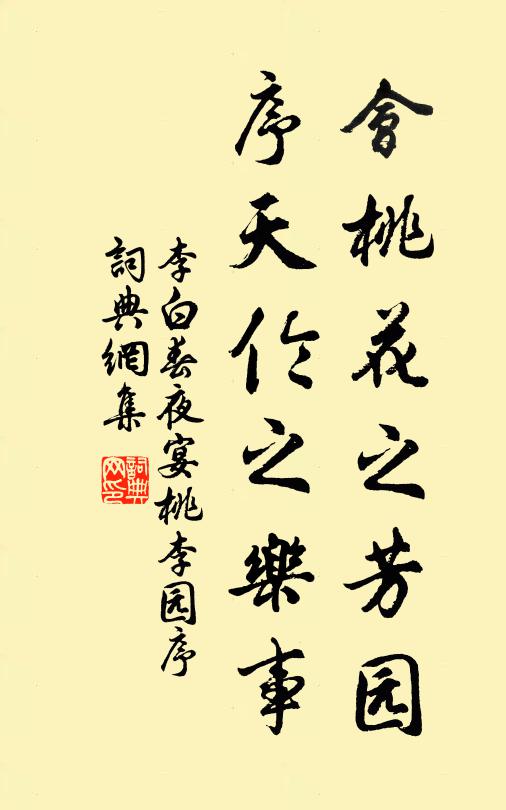 會桃花之芳园
序天伦之樂事
李白春夜宴桃李园序
詞典網集
詞典網印